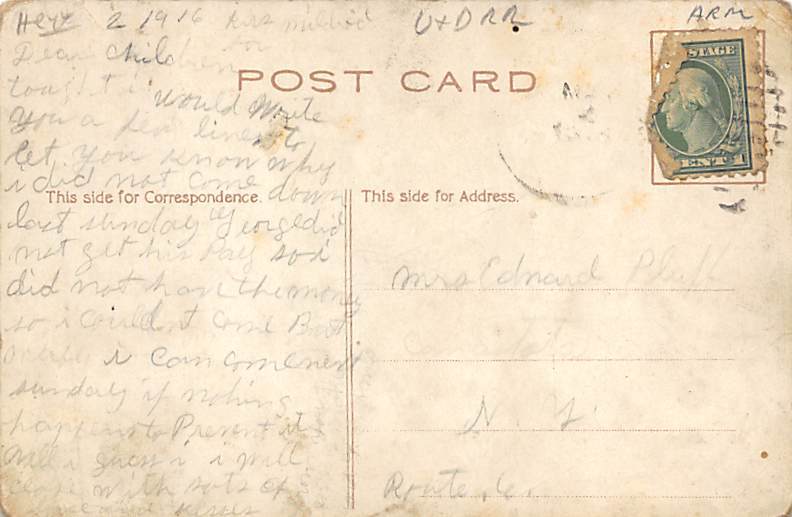 2 1916 kiss mildred
U+DRR
ARM
Dear children
tought i would write
you a few lines to
let you know why
i did not come down
last sunday George did
not get his Pay so i
did not have the money
so i couldnt come But
i can come next
sunday if nothing
happens to Prevent it
well i guess i will
close with lots of
kisses
POST CARD
STAGE
CENT 1
This side for Correspondence.
This side for Address.
Mrs Edward
N. Y.
Route 6.